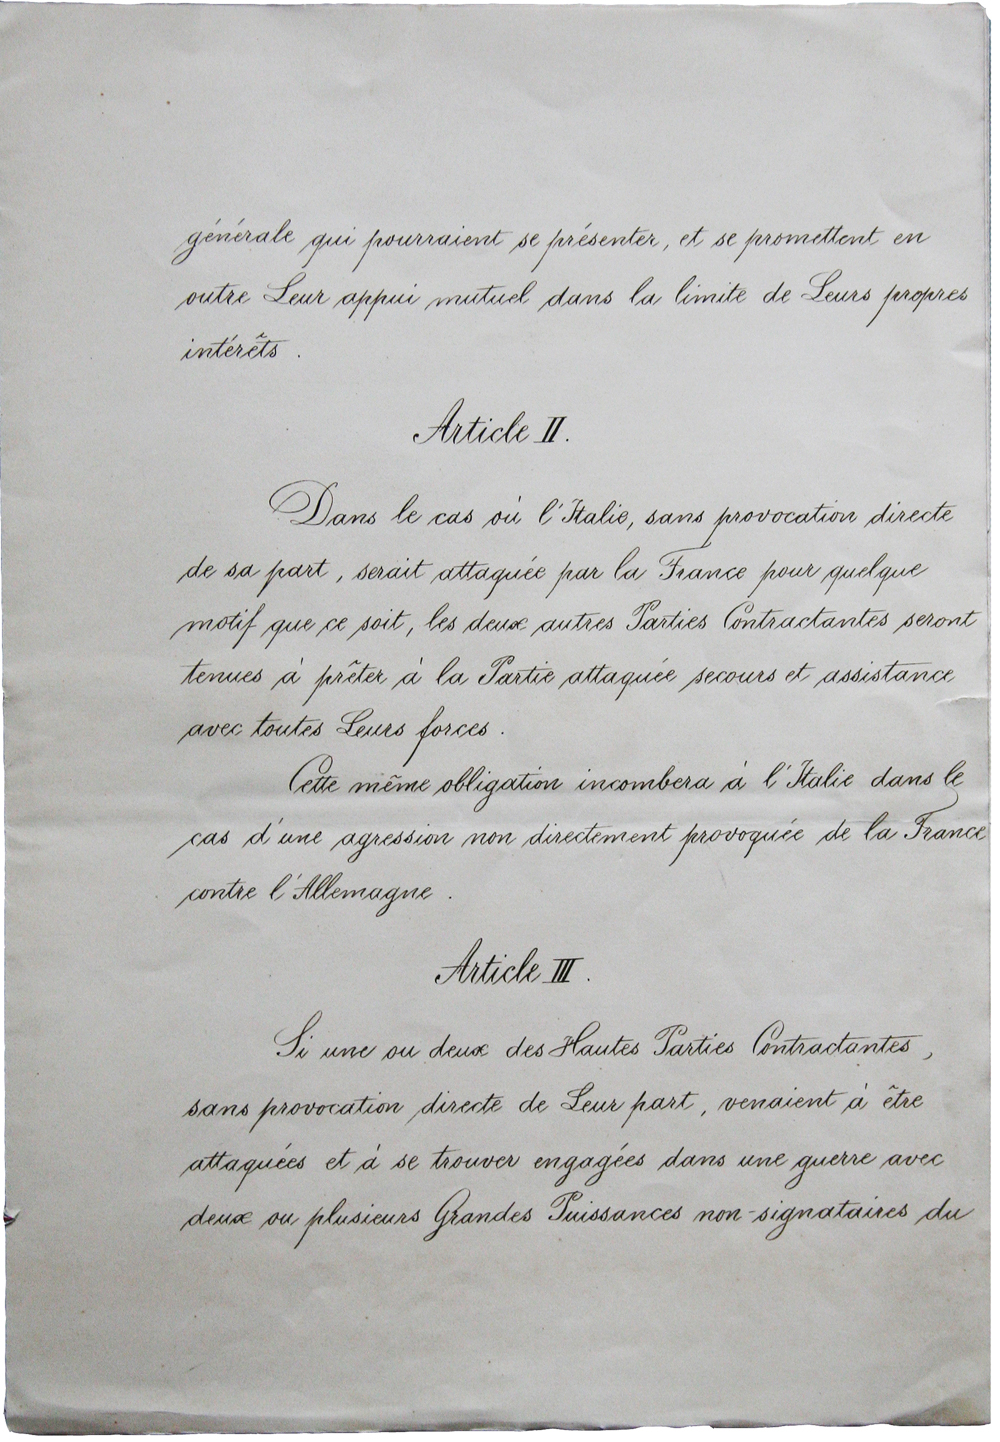 générale qui pourraient se présenter, et se promettent en
outre Leur appui mutuel dans la limite de Leurs propres
intérêts .
Article II.
Dans le cas où l'Italie, sans provocation directe
de sa part, serait attaquée par la France pour quelque
motif que ce soit, les deux autres Parties Contractantes seront
tenues à prêter à la Partie attaquée secours et assistance
avec toutes Leurs forces .
Cette même obligation incombera à l'Italie dans le
cas d'une agression non directement provoquée de la France
contre l'Allemagne .
Article III .
Si une ou deux des Hautes Parties Contractantes,
sans provocation directe de Leur part, venaient à être
attaquées et à se trouver engagées dans une guerre avec
deux ou plusieurs Grandes Puissances non-signataires du